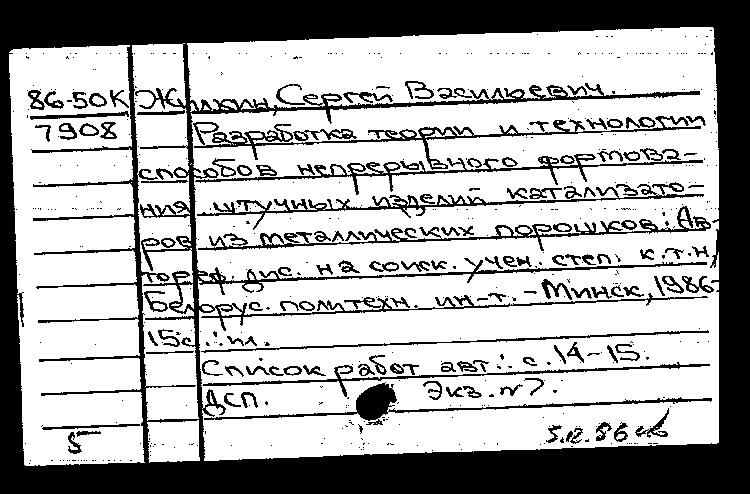 86-50К Жилкин, Сергей Васильевич.
7908 Разработка теории и технологии
способов непрерывного формова-
ния штучных изделий катализато-
ров из металлических порошков: Ав-
тореф. дис. на соиск. учен. степ. к.т.н,
Белорус. политехн. ин-т. - Минск, 1986-
15с.: ил.
Список работ авт.: с. 14-15.
ДСП. Экз. №7.
5 5.12.86